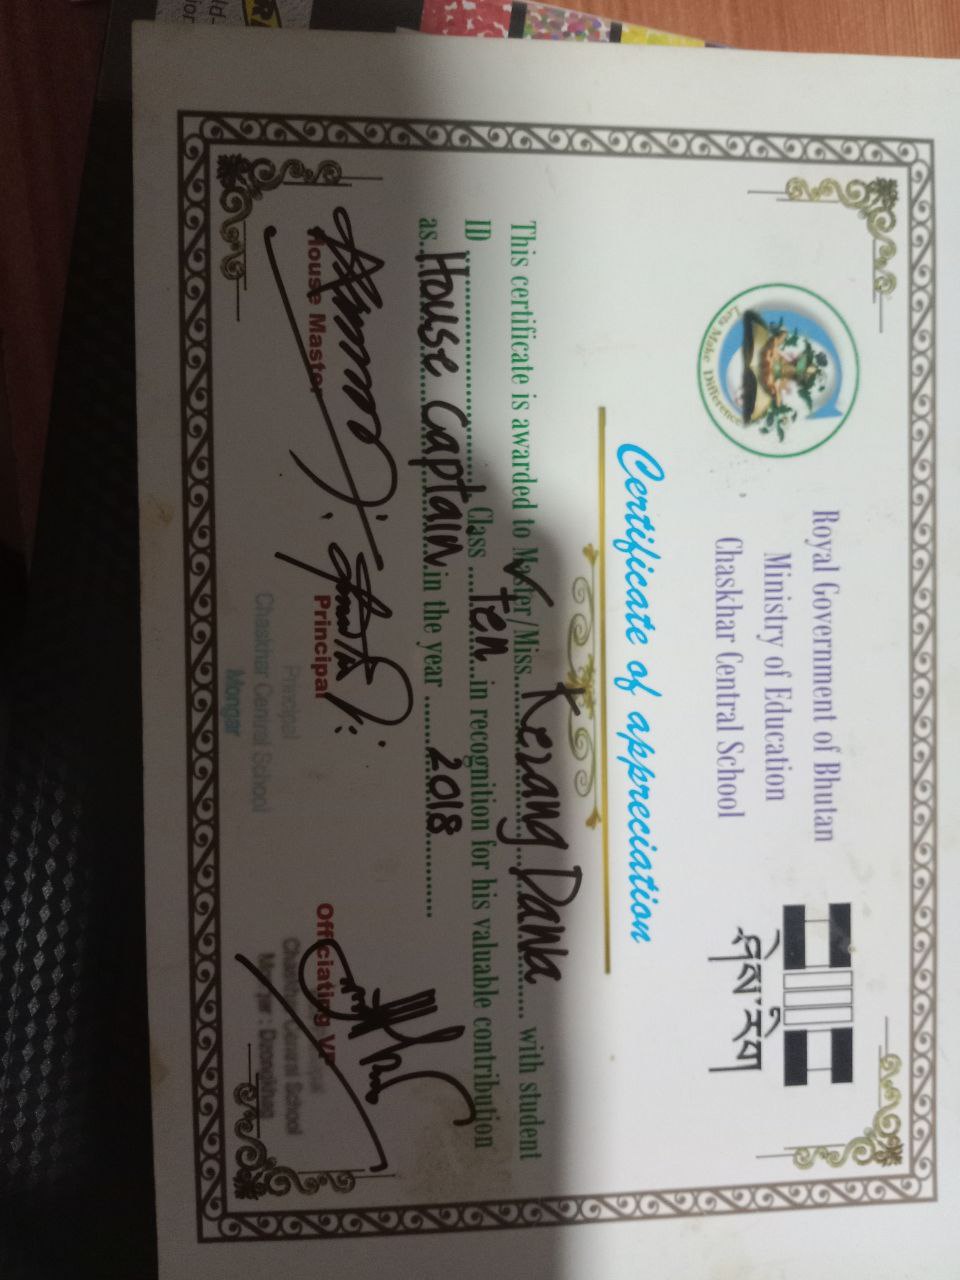 Royal Government of Bhutan
Ministry of Education
Chaskhar Central School
Lets Make Difference
ཤེས་རིག
Certificate of appreciation
This certificate is awarded to Master/Miss....Kezang Dawa.... with student
ID .................... Class ....Ten.... in recognition for his valuable contribution
as..House Captain..in the year ....2018............
House Master
Principal
Officiating VP
Principal
Chaskhar Central School
Mongar
Central School